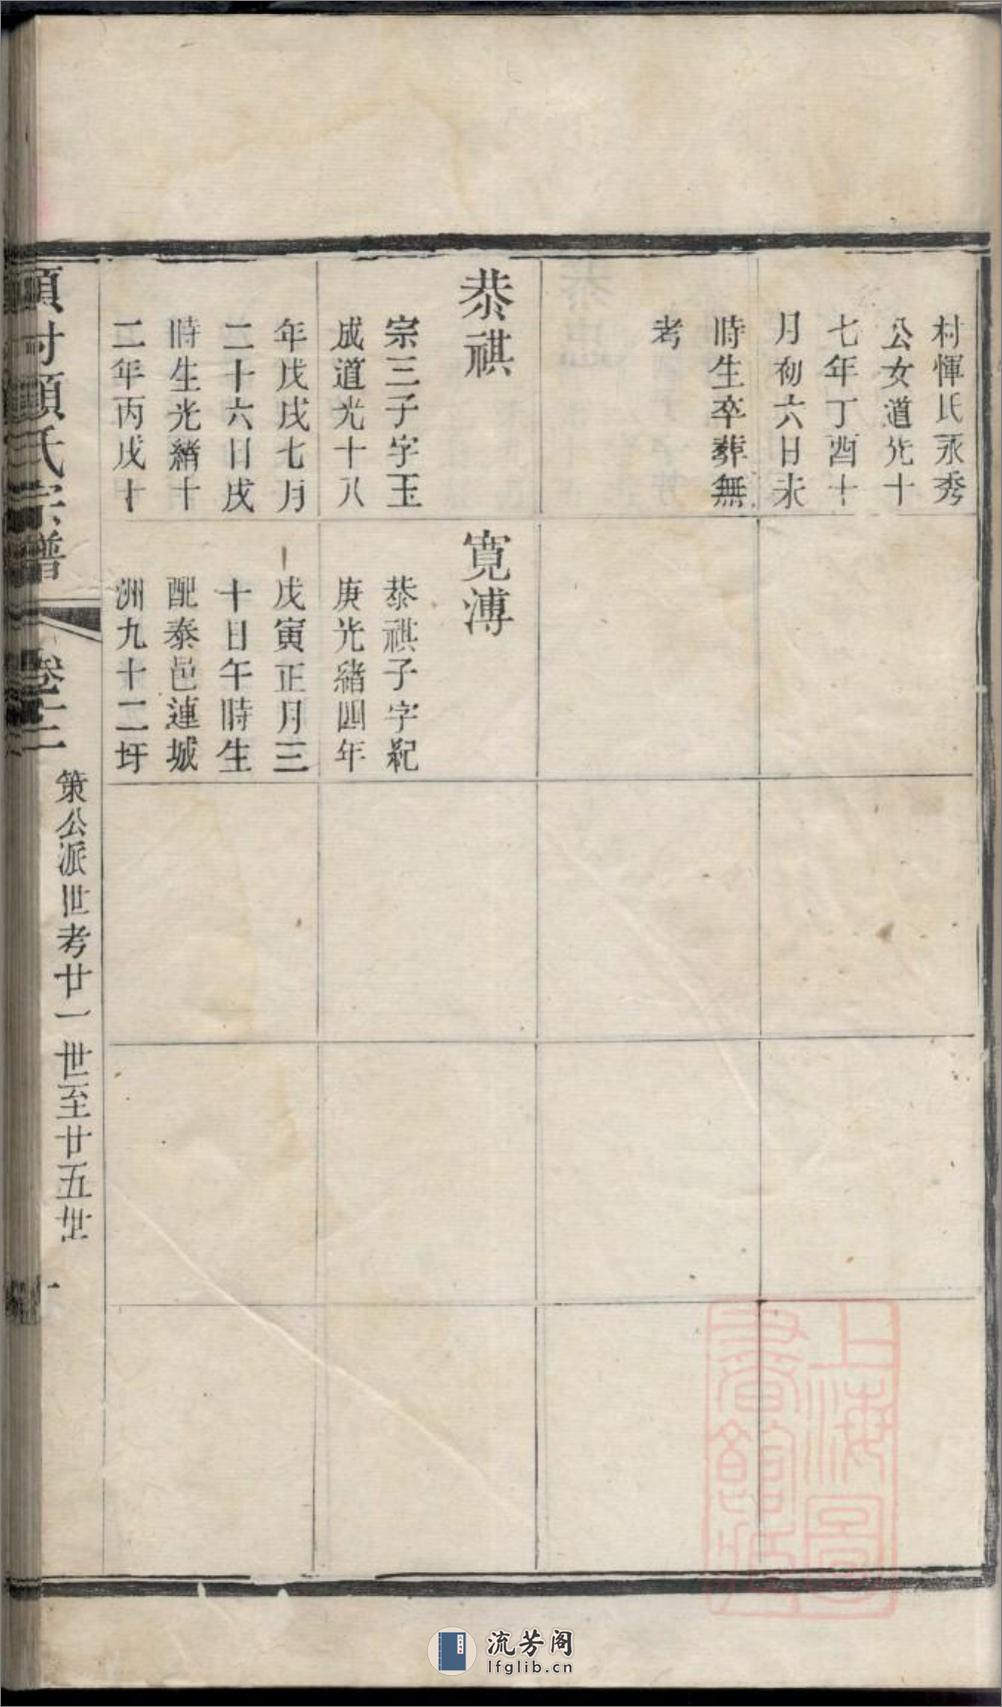 村惲氏永秀
公女道光十
七年丁酉十
月初六日未
時生卒葬無
考
恭祺
宗三子字玉
成道光十八
年戊戌七月
二十六日戌
時生光緒十
二年丙戌十
寛溥
恭祺子字紀
庚光緒四年
戊寅正月三
十日午時生
配泰邑連城
洲九十二圩
村顧氏宗譜
卷十二
策公派世考廿一世至廿五世
一
上海圖
書館藏
流芳阁
lfglib.cn